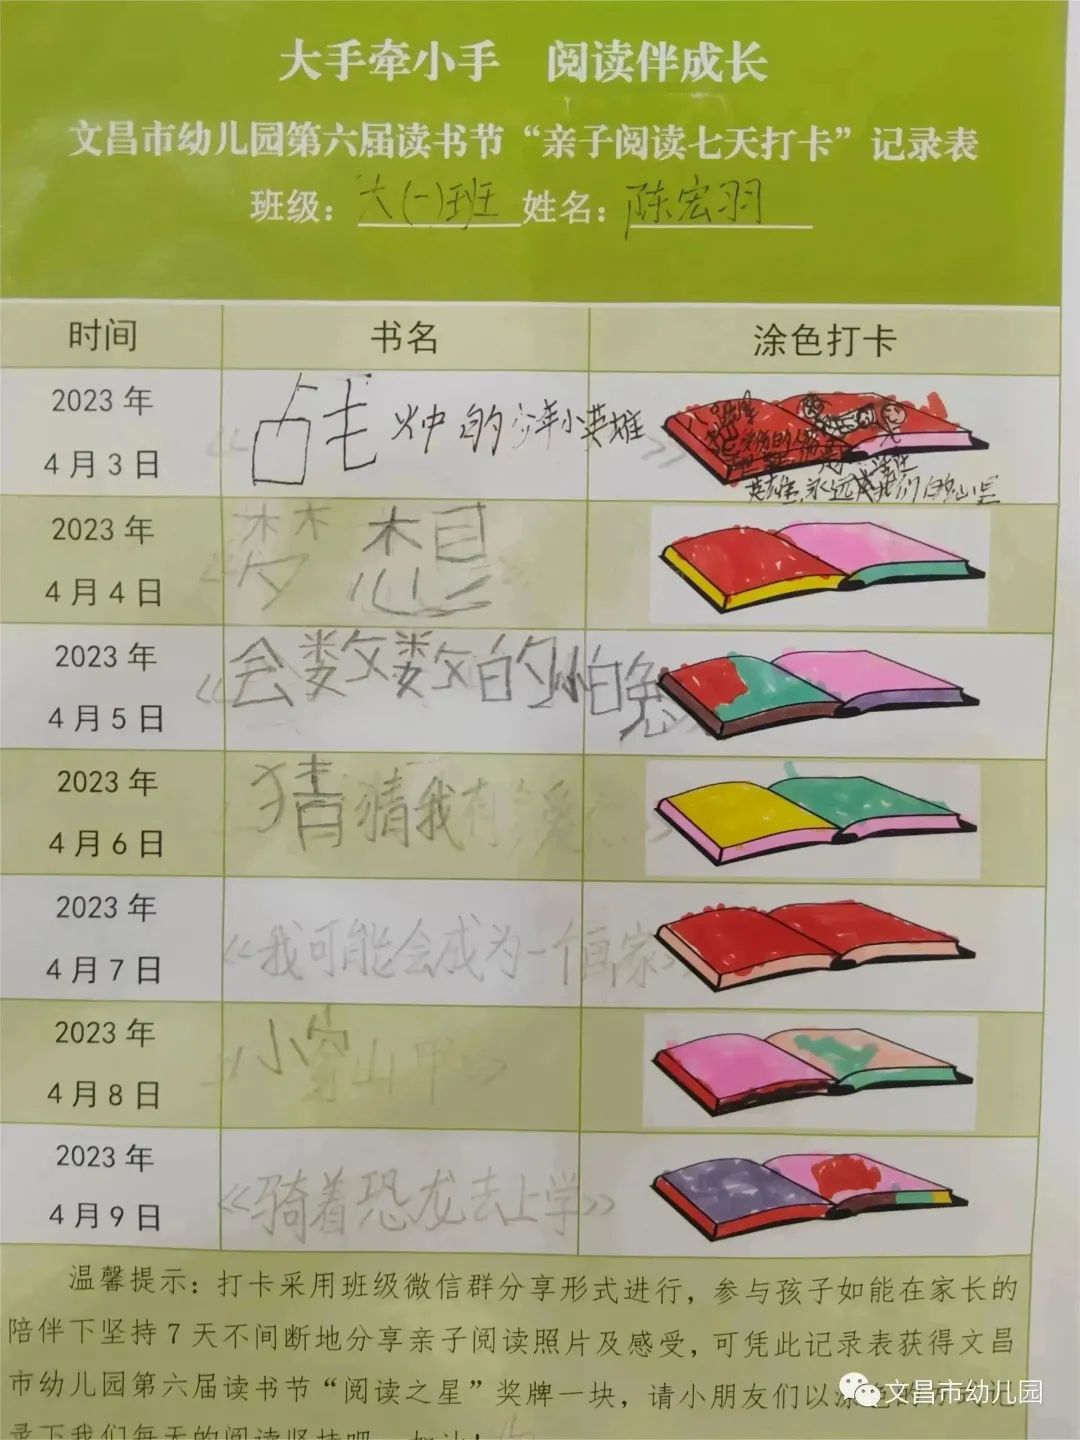 大手牵小手 阅读伴成长
文昌市幼儿园第六届读书节“亲子阅读七天打卡”记录表
班级：大(一)班 姓名：陈宏羽
时间 书名 涂色打卡
2023年
4月3日
《战火中的少年小英雄》
英雄永远 我们的心里
2023年
4月4日
《梦想》
2023年
4月5日
《会数数的小白兔》
2023年
4月6日
猜猜我有 爱
2023年
4月7日
《我可能会成为一个画家》
2023年
4月8日
《小穿山甲》
2023年
4月9日
《骑着恐龙去上学》
温馨提示：打卡采用班级微信群分享形式进行，参与孩子如能在家长的
陪伴下坚持7天不间断地分享亲子阅读照片及感受，可凭此记录表获得文昌
市幼儿园第六届读书节“阅读之星”奖牌一块，请小朋友们以涂色
录下我们每天的阅读坚持吧
文昌市幼儿园